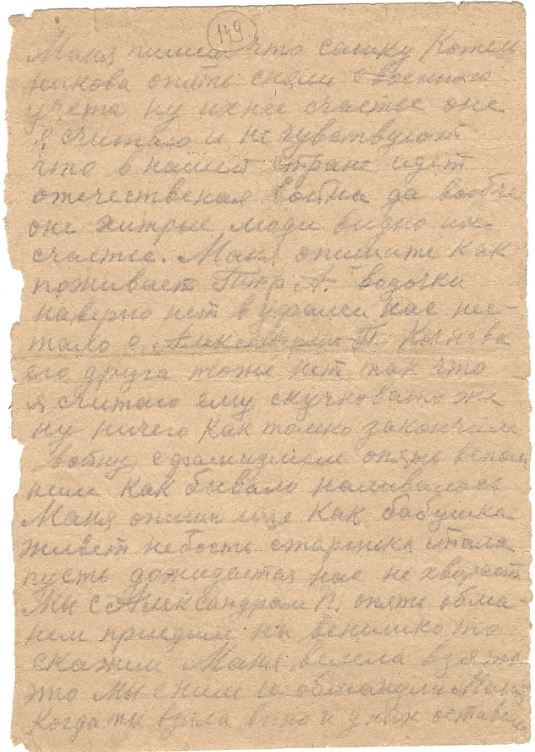 149
Маня пишет что сашку Котель
никова опять сняли с военного
учета ну ихнее счастье оне
я считаю и не чувствуют
что в нашей стране идет
отечественая война да вообче
оне хитрые люди видно их
счастье. Маня опишите как
поживает Петр А. водочки
наверно нет в
тало с Александром П.
его друга тоже нет так что
я считаю ему скучновато же
ну ничего как толко закончим
войну с фашизмом опять вспом
ним как бывало наливалась
Маня опиши еще как бабушка
живет небось старенька стала
пусть дожидается нас не хворает
Мы с Александром П. опять обма
нем приедем к
скажем Маня велела взять
это мы с ним и обманули
когда ты взяла вино и у них оставила